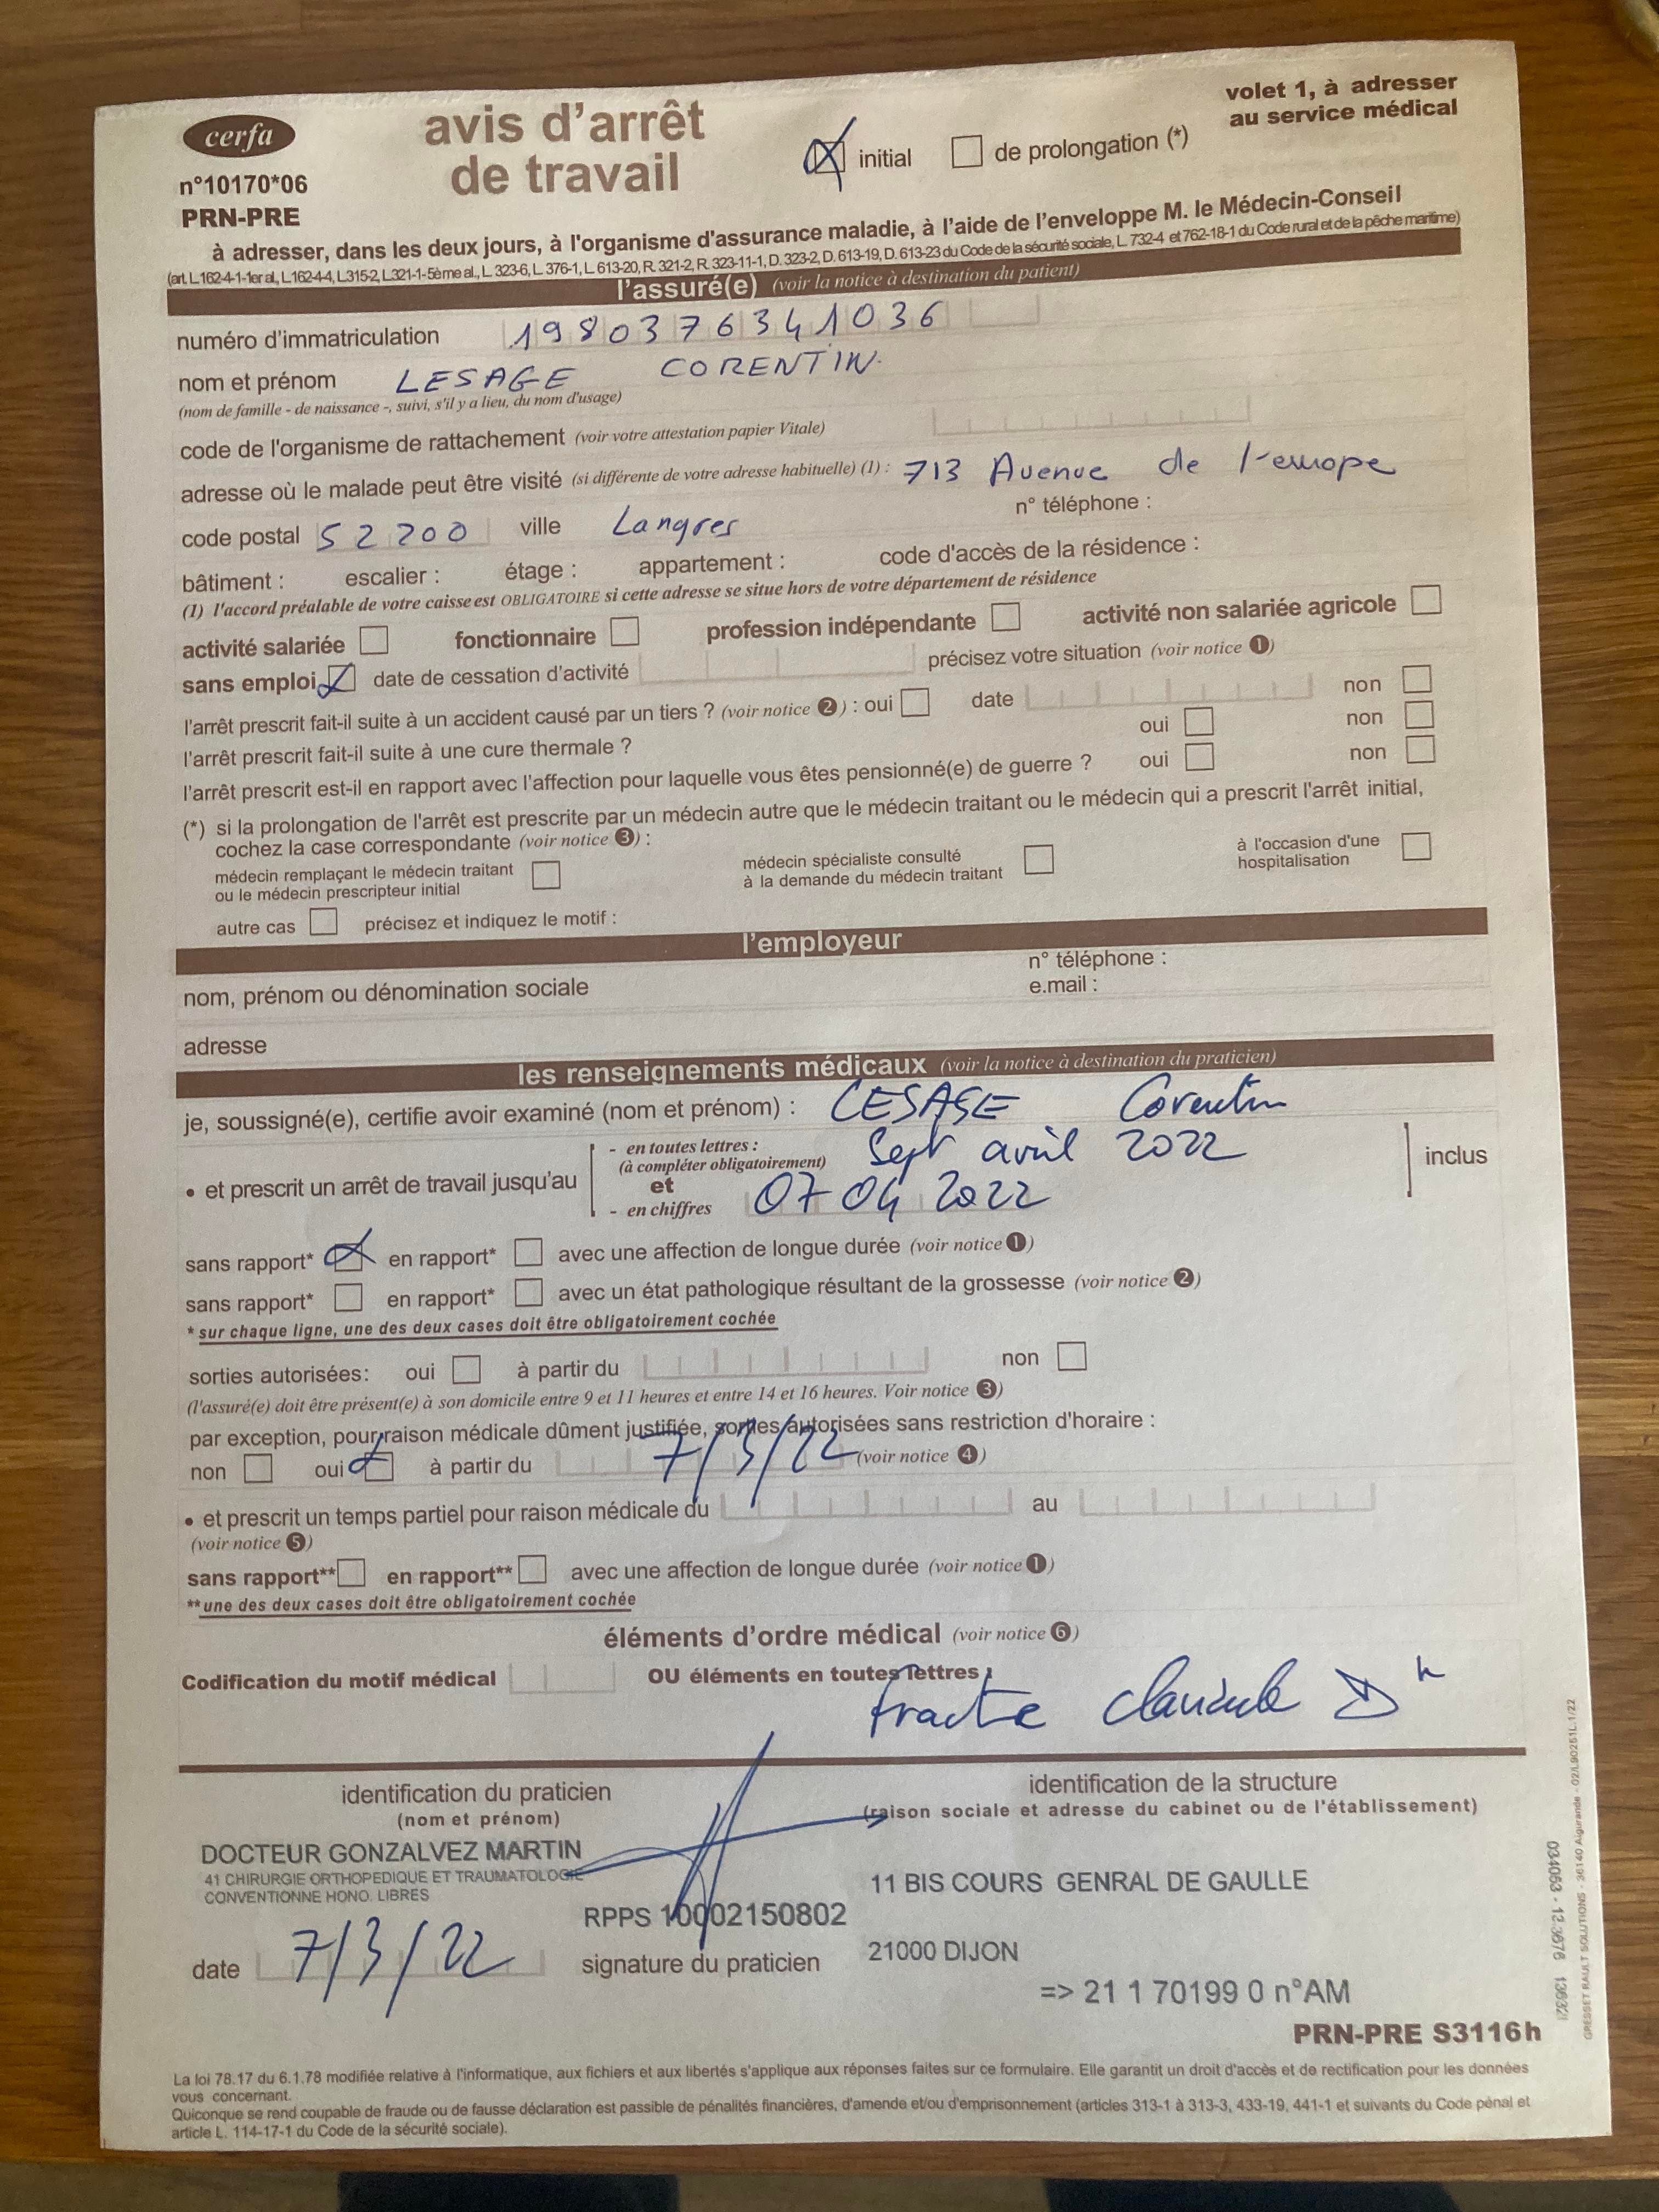 cerfa
n°10170*06
PRN-PRE
avis d'arrêt
de travail
initial de prolongation (*)
volet 1, à adresser
au service médical
à adresser, dans les deux jours, à l'organisme d'assurance maladie, à l'aide de l'enveloppe M. le Médecin-Conseil
(art. L.162-4-1-1er al., L.162-4-4, L.315-2, L.321-1-5ème al., L. 323-6, L. 376-1, L. 613-20, R. 321-2, R. 323-11-1, D. 323-2, D. 613-19, D. 613-23 du Code de la sécurité sociale, L. 732-4 et 762-18-1 du Code rural et de la pêche maritime)
l'assuré(e) (voir la notice à destination du patient)
numéro d'immatriculation 1980376341036
nom et prénom LESAGE CORENTIN.
(nom de famille - de naissance -, suivi, s'il y a lieu, du nom d'usage)
code de l'organisme de rattachement (voir votre attestation papier Vitale)
adresse où le malade peut être visité (si différente de votre adresse habituelle) (1) : 713 Avenue de l'europe
n° téléphone :
code postal 52200 ville Langres
bâtiment : escalier : étage : appartement : code d'accès de la résidence :
(1) l'accord préalable de votre caisse est OBLIGATOIRE si cette adresse se situe hors de votre département de résidence
activité salariée fonctionnaire profession indépendante activité non salariée agricole
sans emploi date de cessation d'activité précisez votre situation (voir notice 1)
l'arrêt prescrit fait-il suite à un accident causé par un tiers ? (voir notice 2) : oui date non
l'arrêt prescrit fait-il suite à une cure thermale ? oui non
l'arrêt prescrit est-il en rapport avec l'affection pour laquelle vous êtes pensionné(e) de guerre ? oui non
(*) si la prolongation de l'arrêt est prescrite par un médecin autre que le médecin traitant ou le médecin qui a prescrit l'arrêt initial,
cochez la case correspondante (voir notice 3) :
médecin remplaçant le médecin traitant
ou le médecin prescripteur initial
médecin spécialiste consulté
à la demande du médecin traitant
à l'occasion d'une
hospitalisation
autre cas précisez et indiquez le motif :
l'employeur
nom, prénom ou dénomination sociale
n° téléphone :
e.mail :
adresse
les renseignements médicaux (voir la notice à destination du praticien)
je, soussigné(e), certifie avoir examiné (nom et prénom) : LESAGE Corentin
• et prescrit un arrêt de travail jusqu'au
- en toutes lettres : Sept avril 2022
(à compléter obligatoirement)
et
- en chiffres 07 04 2022
inclus
sans rapport* en rapport* avec une affection de longue durée (voir notice 1)
sans rapport* en rapport* avec un état pathologique résultant de la grossesse (voir notice 2)
* sur chaque ligne, une des deux cases doit être obligatoirement cochée
sorties autorisées: oui à partir du non
(l'assuré(e) doit être présent(e) à son domicile entre 9 et 11 heures et entre 14 et 16 heures. Voir notice 3)
par exception, pour raison médicale dûment justifiée, sorties autorisées sans restriction d'horaire :
non oui à partir du 7/3/22 (voir notice 4)
• et prescrit un temps partiel pour raison médicale du au
(voir notice 5)
sans rapport** en rapport** avec une affection de longue durée (voir notice 1)
** une des deux cases doit être obligatoirement cochée
éléments d'ordre médical (voir notice 6)
Codification du motif médical OU éléments en toutes lettres :
clavicule
identification du praticien
(nom et prénom)
identification de la structure
(raison sociale et adresse du cabinet ou de l'établissement)
DOCTEUR GONZALVEZ MARTIN
41 CHIRURGIE ORTHOPEDIQUE ET TRAUMATOLOGIE
CONVENTIONNE HONO. LIBRES
RPPS 10002150802
11 BIS COURS GENRAL DE GAULLE
date 7/3/22
signature du praticien
21000 DIJON
=> 21 1 70199 0 n°AM
PRN-PRE S3116h
La loi 78.17 du 6.1.78 modifiée relative à l'informatique, aux fichiers et aux libertés s'applique aux réponses faites sur ce formulaire. Elle garantit un droit d'accès et de rectification pour les données
vous concernant.
Quiconque se rend coupable de fraude ou de fausse déclaration est passible de pénalités financières, d'amende et/ou d'emprisonnement (articles 313-1 à 313-3, 433-19, 441-1 et suivants du Code pénal et
article L. 114-17-1 du Code de la sécurité sociale).
GRESSET RAULT SOLUTIONS - 36140 Aigurande - 02/L90251L 1/22